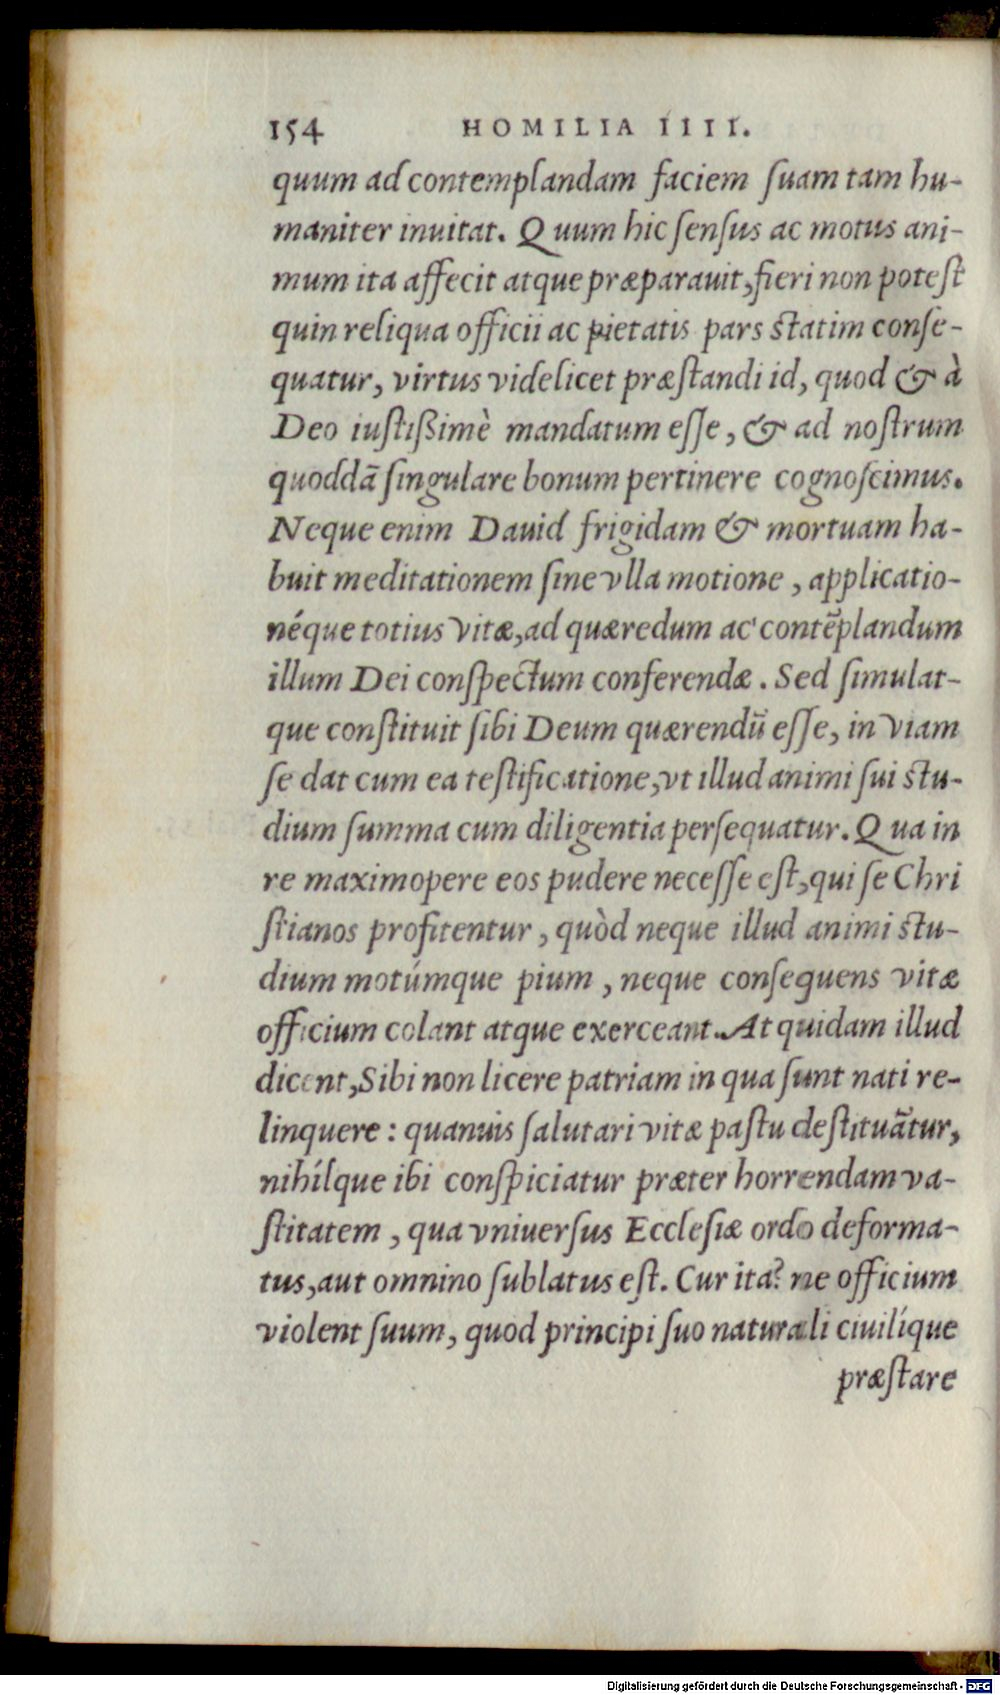 154 HOMILIA IIII.
quum ad contemplandam faciem ſuam tam hu-
maniter inuitat. Quum hic ſenſus ac motus ani-
mum ita affecit atque præparauit, fieri non poteſt
quin reliqua officii ac pietatis pars ſtatim conſe-
quatur, virtus videlicet præſtandi id, quod & à
Deo iuſtißimè mandatum eſſe, & ad noſtrum
quoddā ſingulare bonum pertinere cognoſcimus.
Neque enim Dauid frigidam & mortuam ha-
buit meditationem ſine vlla motione, applicatio-
néque totius vitæ, ad quæredum ac contēplandum
illum Dei conſpectum conferendæ. Sed ſimulat-
que conſtituit ſibi Deum quærendū eſſe, in viam
ſe dat cum ea teſtificatione, vt illud animi ſui ſtu-
dium ſumma cum diligentia perſequatur. Qua in
re maximopere eos pudere neceſſe eſt, qui ſe Chri
ſtianos profitentur, quòd neque illud animi ſtu-
dium motúmque pium, neque conſequens vitæ
officium colant atque exerceant. At quidam illud
dicent, Sibi non licere patriam in qua ſunt nati re-
linquere: quanuis ſalutari vitæ paſtu deſtituātur,
nihílque ibi conſpiciatur præter horrendam va-
ſtitatem, qua vniuerſus Eccleſiæ ordo deforma-
tus, aut omnino ſublatus eſt. Cur ita? ne officium
violent ſuum, quod principi ſuo naturali ciuilíque
præſtare
Digitalisierung gefördert durch die Deutsche Forschungsgemeinschaft - DFG